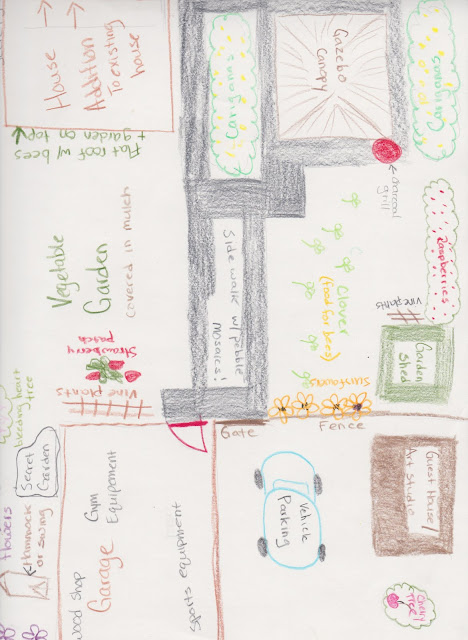 House
Addition
To existing
house
Flat roof w/ bees
+ garden on top
Caraganas
Gazebo
Canopy
Caraganas
or not
charcoal
grill
Raspberries
Vine plants
Garden
Shed
Vegetable
Garden
covered in mulch
Strawberry
patch
Vine plants
Side walk w/ pebble
mosaics!
Clover
(food for bees)
Sunflowers
Gate
Fence
bleeding heart
tree
Secret
Garden
Flowers
Hammock
or swing
Wood Shop
Garage
Gym
Equipement
Sports equipment
Vehicle
Parking
Guest House/
Art studio
Cherry
Tree